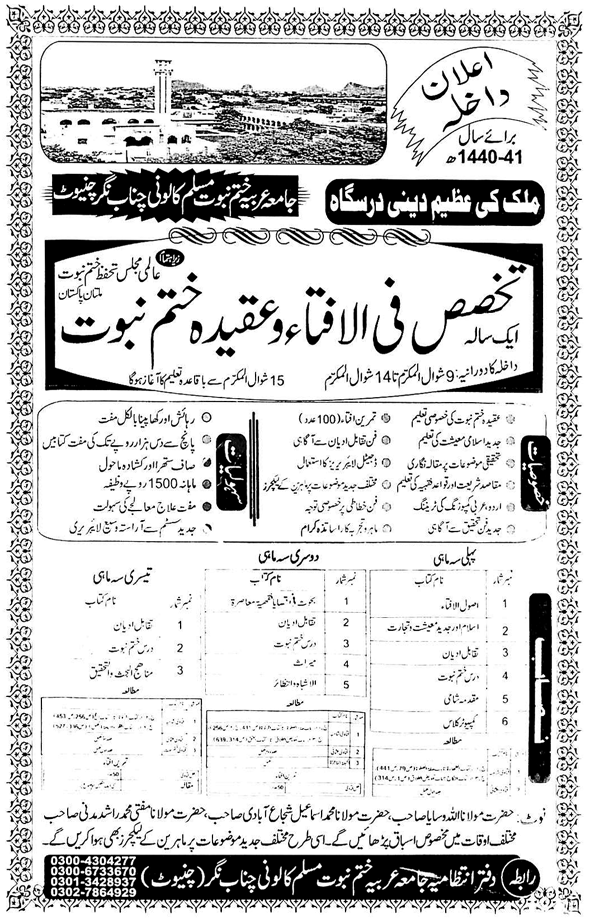 اعلان
داخلہ
برائے سال
1440-41ھ
ملک کی عظیم دینی درسگاہ
جامعہ عربیہ ختم نبوت مسلم کالونی چناب نگر چنیوٹ
زیر اہتمام
عالمی مجلس تحفظ ختم نبوت
ملتان پاکستان
ایک سالہ
تخصص فی الافتاء و عقیدہ ختم نبوت
داخلہ کا دورانیہ: 9 شوال المکرم تا 14 شوال المکرم
15 شوال المکرم سے باقاعدہ تعلیم کا آغاز ہوگا
خصوصیات
عقیدہ ختم نبوت کی خصوصی تعلیم
جدید اسلامی معیشت کی تعلیم
تحقیقی موضوعات پر مقالہ نگاری
مقاصد شریعت اور قواعد فقہیہ کی تعلیم
اردو، عربی کمپوزنگ کی ٹریننگ
جدید فن تحقیق سے آگاہی
تمرین افتاء (100 عدد)
فن تقابل ادیان سے آگاہی
ڈیجیٹل لائبریریز کا استعمال
مختلف جدید موضوعات پر ماہرین کے لیکچرز
فن خطاطی پر خصوصی توجہ
ماہر و تجربہ کار اساتذہ کرام
سہولیات
رہائش اور کھانا پینا بالکل مفت
پانچ سے دس ہزار روپے تک کی مفت کتابیں
صاف ستھرا اور کشادہ ماحول
ماہانہ 1500 روپے وظیفہ
مفت علاج معالجے کی سہولت
جدید سسٹم سے آراستہ وسیع لائبریری
نصاب
پہلی سہ ماہی
نمبر شمار نام کتاب
1 اصول الافتاء
2 اسلام اور جدید معیشت و تجارت
3 تقابل ادیان
4 درس ختم نبوت
5 مقدمہ شامی
6 کمپیوٹر کلاس
مطالعہ
دوسری سہ ماہی
نمبر شمار نام کتاب
1 بحوث فی قضایا فقہیة معاصرة
2 تقابل ادیان
3 درس ختم نبوت
4 میراث
5 الاشباہ والنظائر
مطالعہ
تیسری سہ ماہی
نمبر شمار نام کتاب
1 تقابل ادیان
2 درس ختم نبوت
3 مناهج البحث والتحقيق
مطالعہ
نوٹ: حضرت مولانا اللہ وسایا صاحب، حضرت مولانا محمد اسماعیل شجاع آبادی صاحب، حضرت مولانا مفتی محمد راشد مدنی صاحب
مختلف اوقات میں مخصوص اسباق پڑھائیں گے۔ اسی طرح مختلف جدید موضوعات پر ماہرین کے لیکچرز بھی ہوا کریں گے۔
رابطہ دفتر انتظامیہ جامعہ عربیہ ختم نبوت مسلم کالونی چناب نگر (چنیوٹ)
0300-4304277
0300-6733670
0301-3428933
0302-7864929